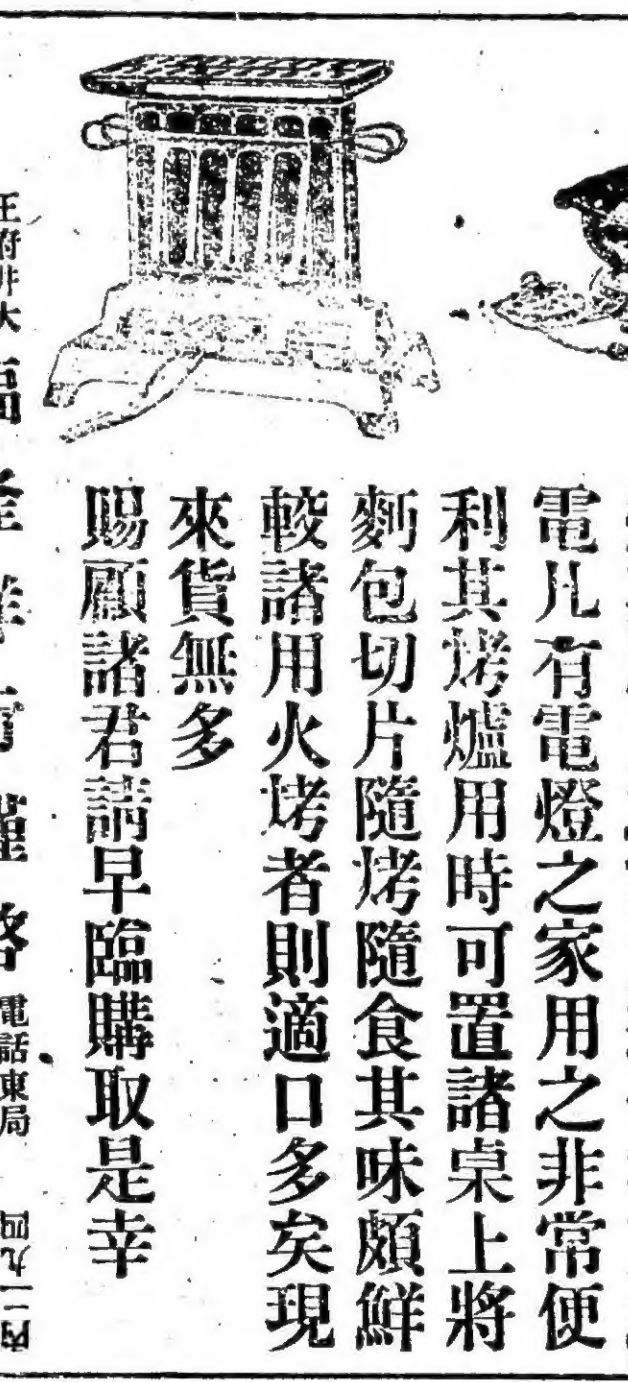 電凡有電燈之家用之非常便
利其烤爐用時可置諸桌上將
麪包切片隨烤隨食其味頗鮮
較諸用火烤者則適口多矣現
來貨無多
賜顧諸君請早臨購取是幸
王府井大
電話東局
四九二內